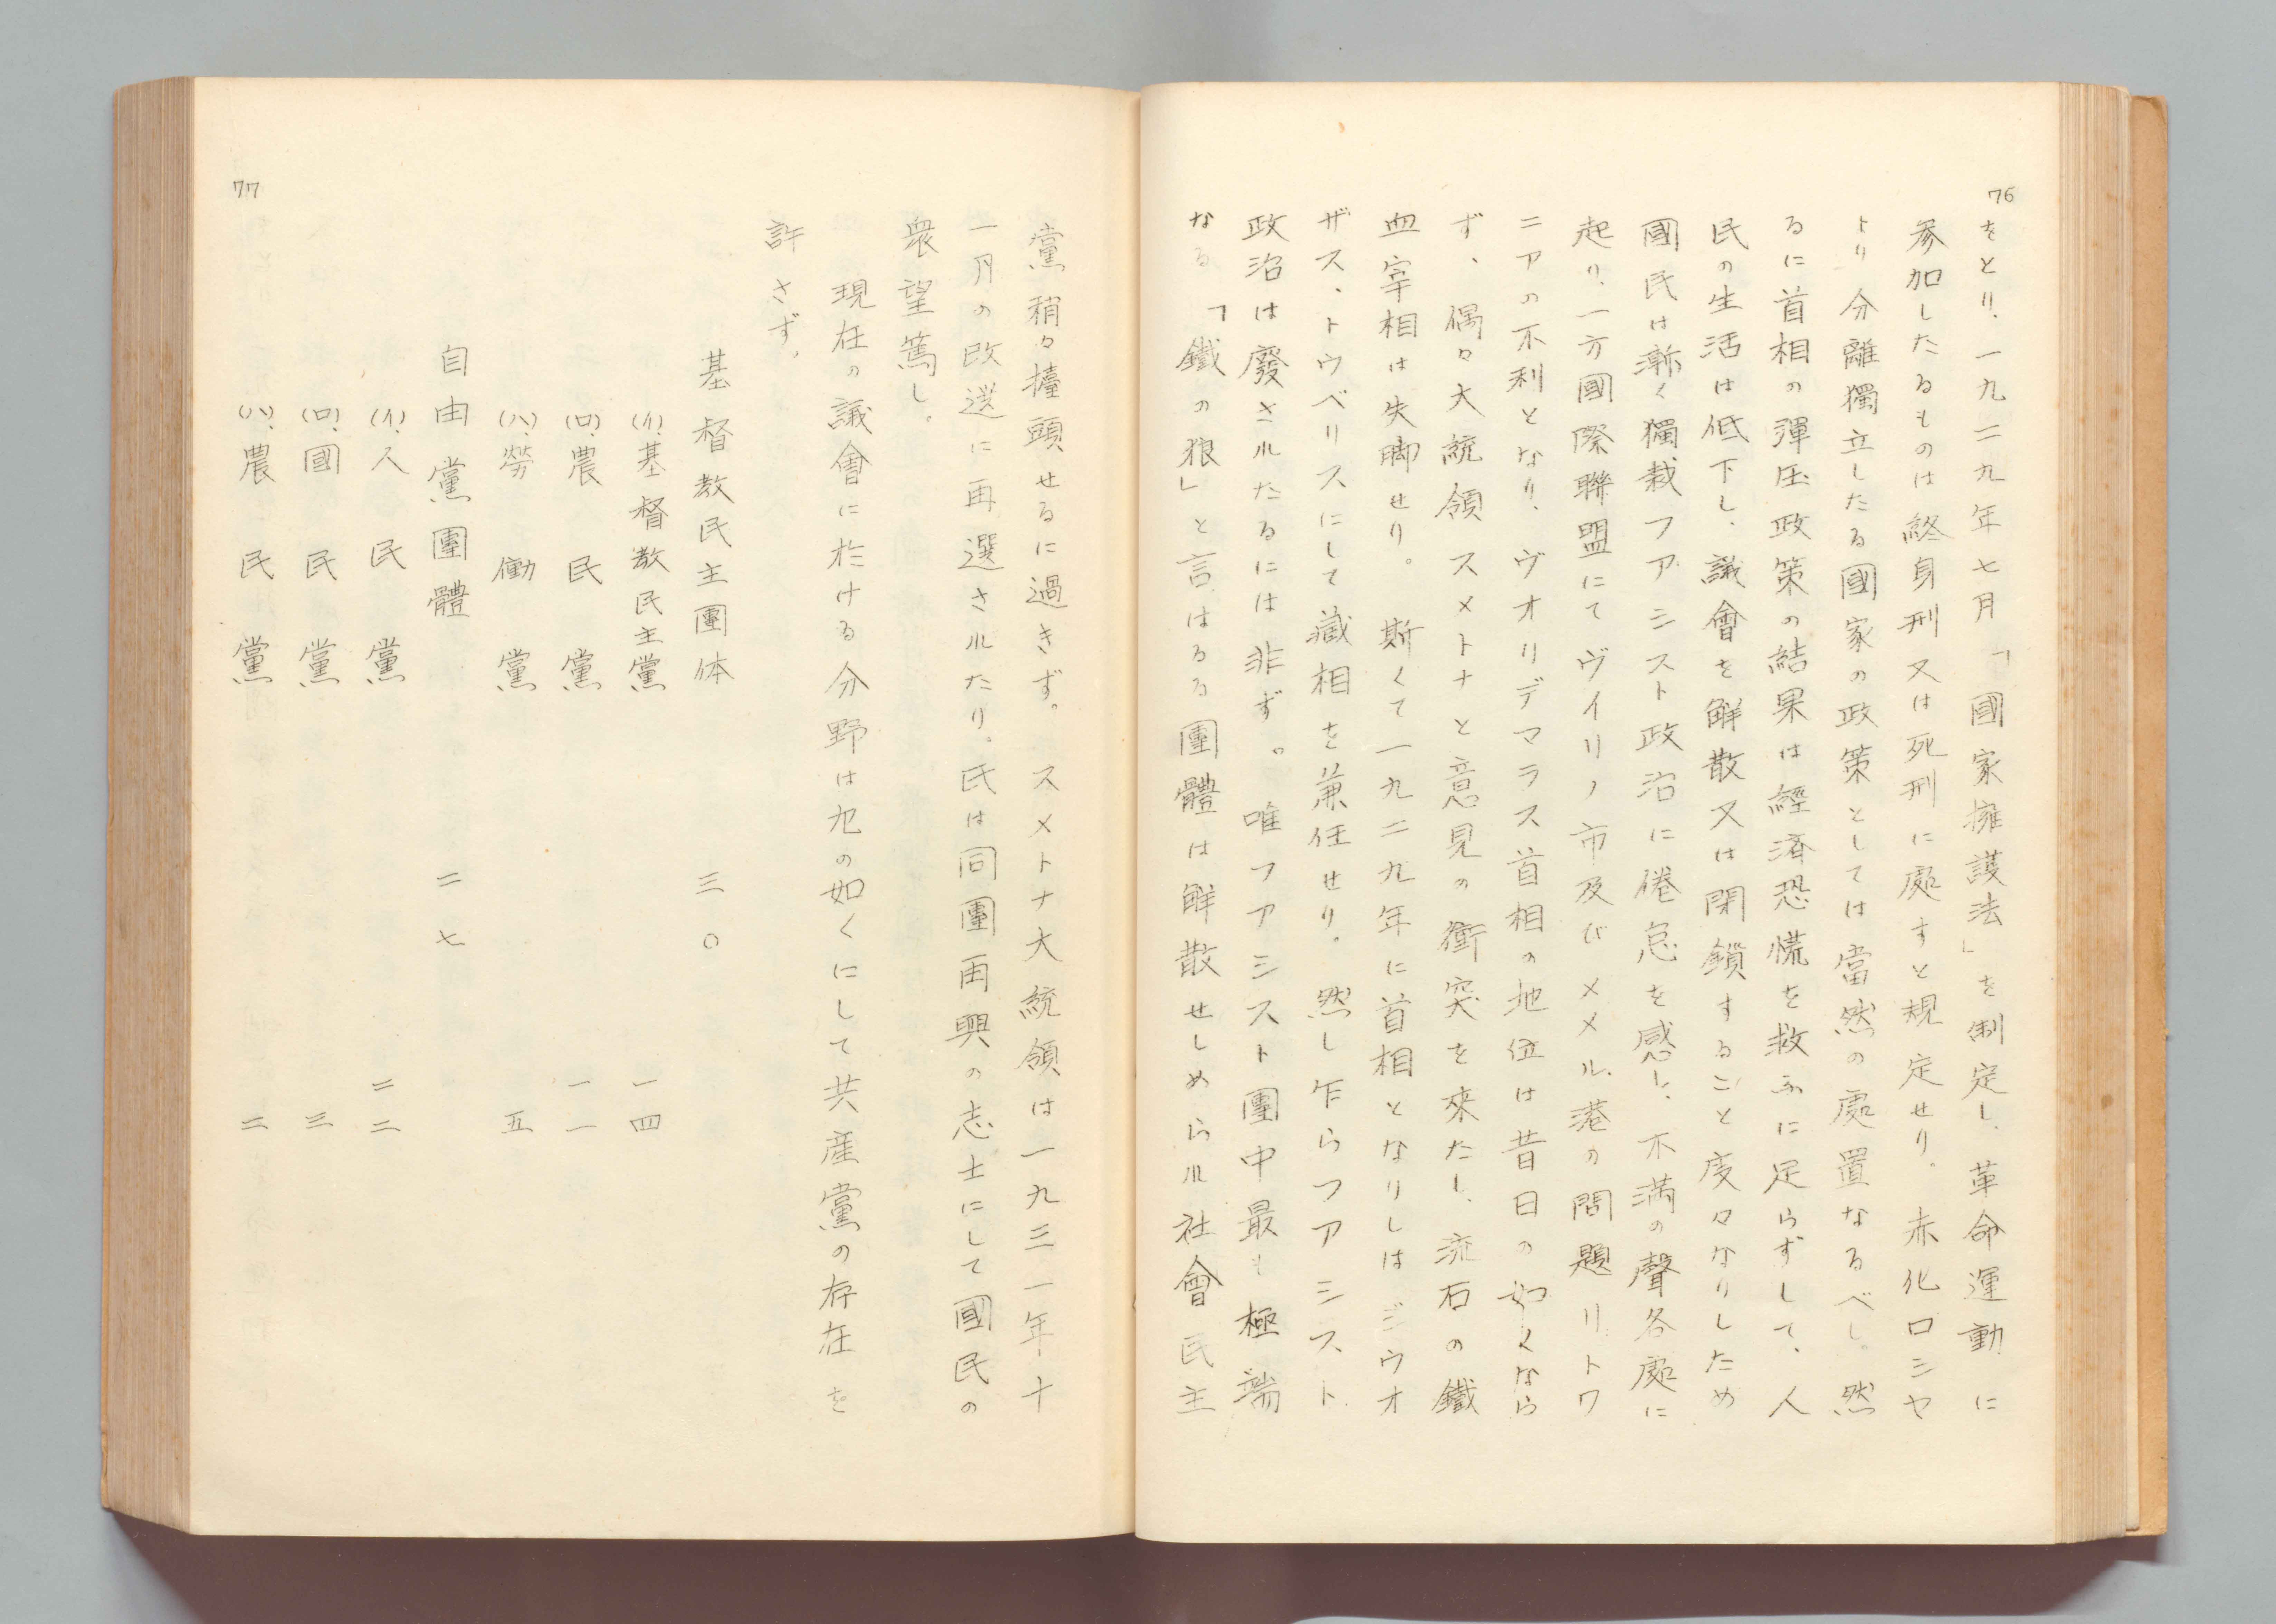 76
をとり、一九二九年七月「國家擁護法」を制定し、革命運動に
参加したるものは終身刑又は死刑に處すと規定せり。赤化ロシヤ
より分離獨立したる國家の政策としては當然の處置なるべし。然
るに首相の弾圧政策の結果は經済恐慌を救ふに足らずして、人
民の生活は低下し、議會を解散又は閉鎖すること度々なりしため
國民は漸く獨裁フアシスト政治に倦怠を感し、不満の聲各處に
起り、一方國際聯盟にてヴイリノ市及びメメル港の問題リトワ
ニアの不利となり、ヴオリデマラス首相の地位は昔日の如くなら
ず、偶々大統領スメトナと意見の衝突を來たし、流石の鐵
血宰相は失脚せり。斯くて一九二九年に首相となりしはジウオ
ザス、トウベリスにして藏相を兼任せり。然し乍らフアシスト
政治は廢されたるには非ず。唯フアシスト團中最も極端
なる「鐵の狼」と言はるる團體は解散せしめられ社會民主
77
黨稍々擡頭せるに過きず。スメトナ大統領は一九三一年十
一月の改選に再選されたり。氏は同團再興の志士にして國民の
衆望篤し。
現在の議會に於ける分野は九の如くにして共産黨の存在を
許さず。
基督教民主團体 三〇
(イ)、基督教民主黨 一四
(ロ)、農民黨 一一
(ハ)、勞働黨 五
自由黨團體 二七
(イ)、人民黨 二二
(ロ)、國民黨 三
(ハ)、農民黨 二